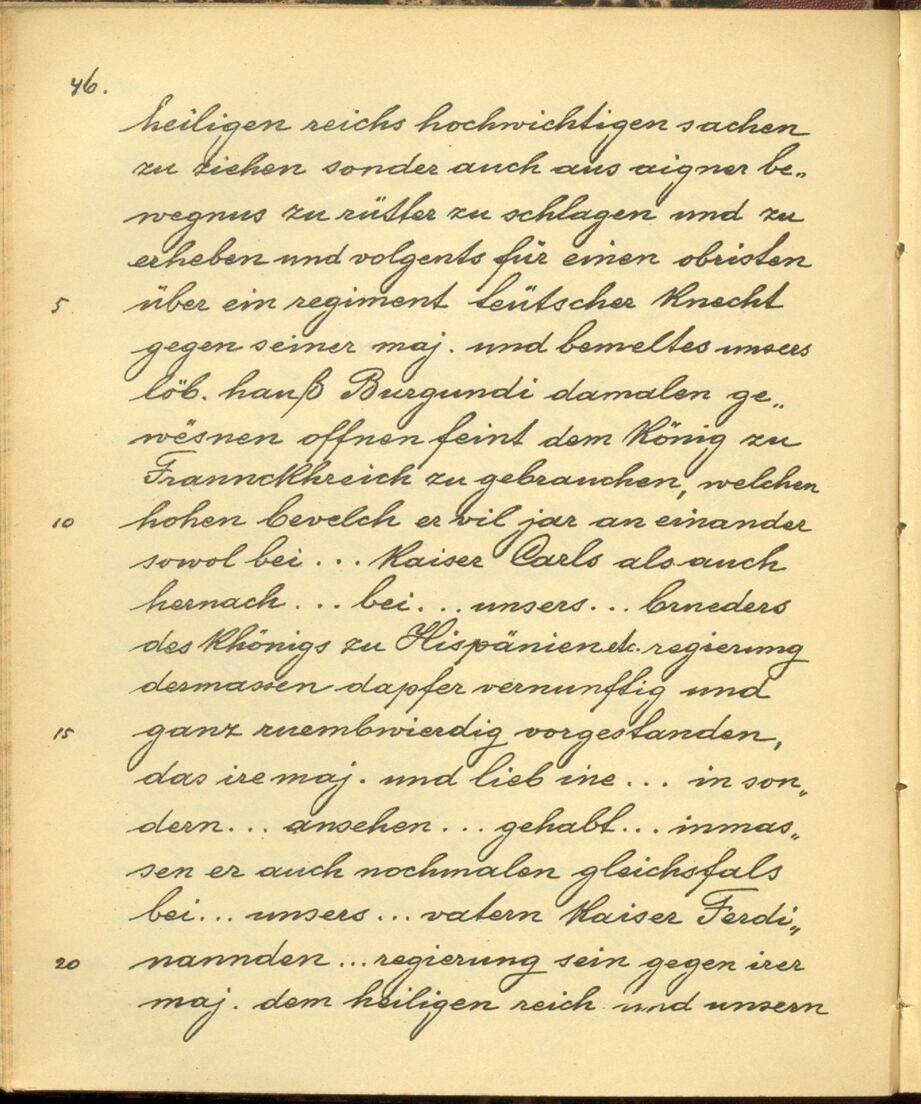 46.
heiligen reichs hochwichtigen sachen
zu ziehen sonder auch aus aigner be„
wegnus zu rütter zu schlagen und zu
erheben und volgents für einen obristen
5 über ein regiment teütscher Knecht
gegen seiner maj. und bemeltes unsers
löb. hauß Burgundi damalen ge„
wësnen offnen feint dem König zu
Frannckhreich zu gebrauchen, welchen
10 hohen bevelch er vil jar an einander
sowol bei ... Kaiser Carls als auch
hernach ... bei ... unsers ... brueders
des Khönigs zu Hispänien etc. regierung
dermassen dapfer vernunftig und
15 ganz ruembwierdig vorgestanden,
das ire maj. und lieb ine ... in son„
dern ... ansehen ... gehabt ... inmas„
sen er auch nochmalen gleichsfals
bei ... unsers ... vatern Kaiser Ferdi„
20 nannden ... regierung sein gegen irer
maj. dem heiligen reich und unsern